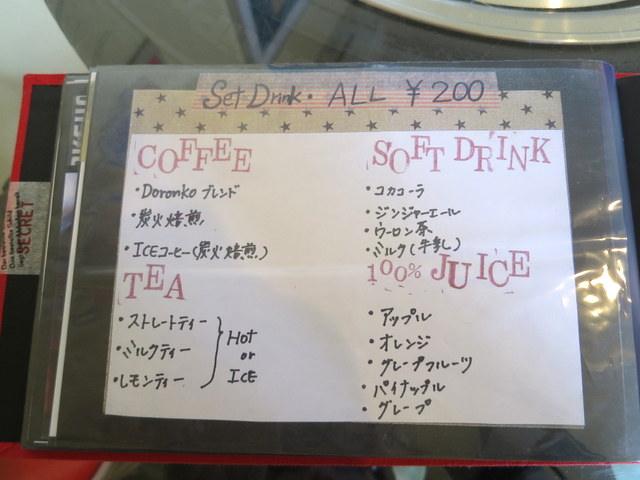 Set Drink・ ALL ¥200
COFFEE
・Doronko ブレンド
・炭火焙煎
・ICEコーヒー(炭火焙煎)
TEA
・ストレートティー
・ミルクティー
・レモンティー
Hot
or
ICE
SOFT DRINK
・コカコーラ
・ジンジャーエール
・ウーロン茶
・ミルク(牛乳)
100% JUICE
・アップル
・オレンジ
・グレープフルーツ
・パイナップル
・グレープ
SECRET